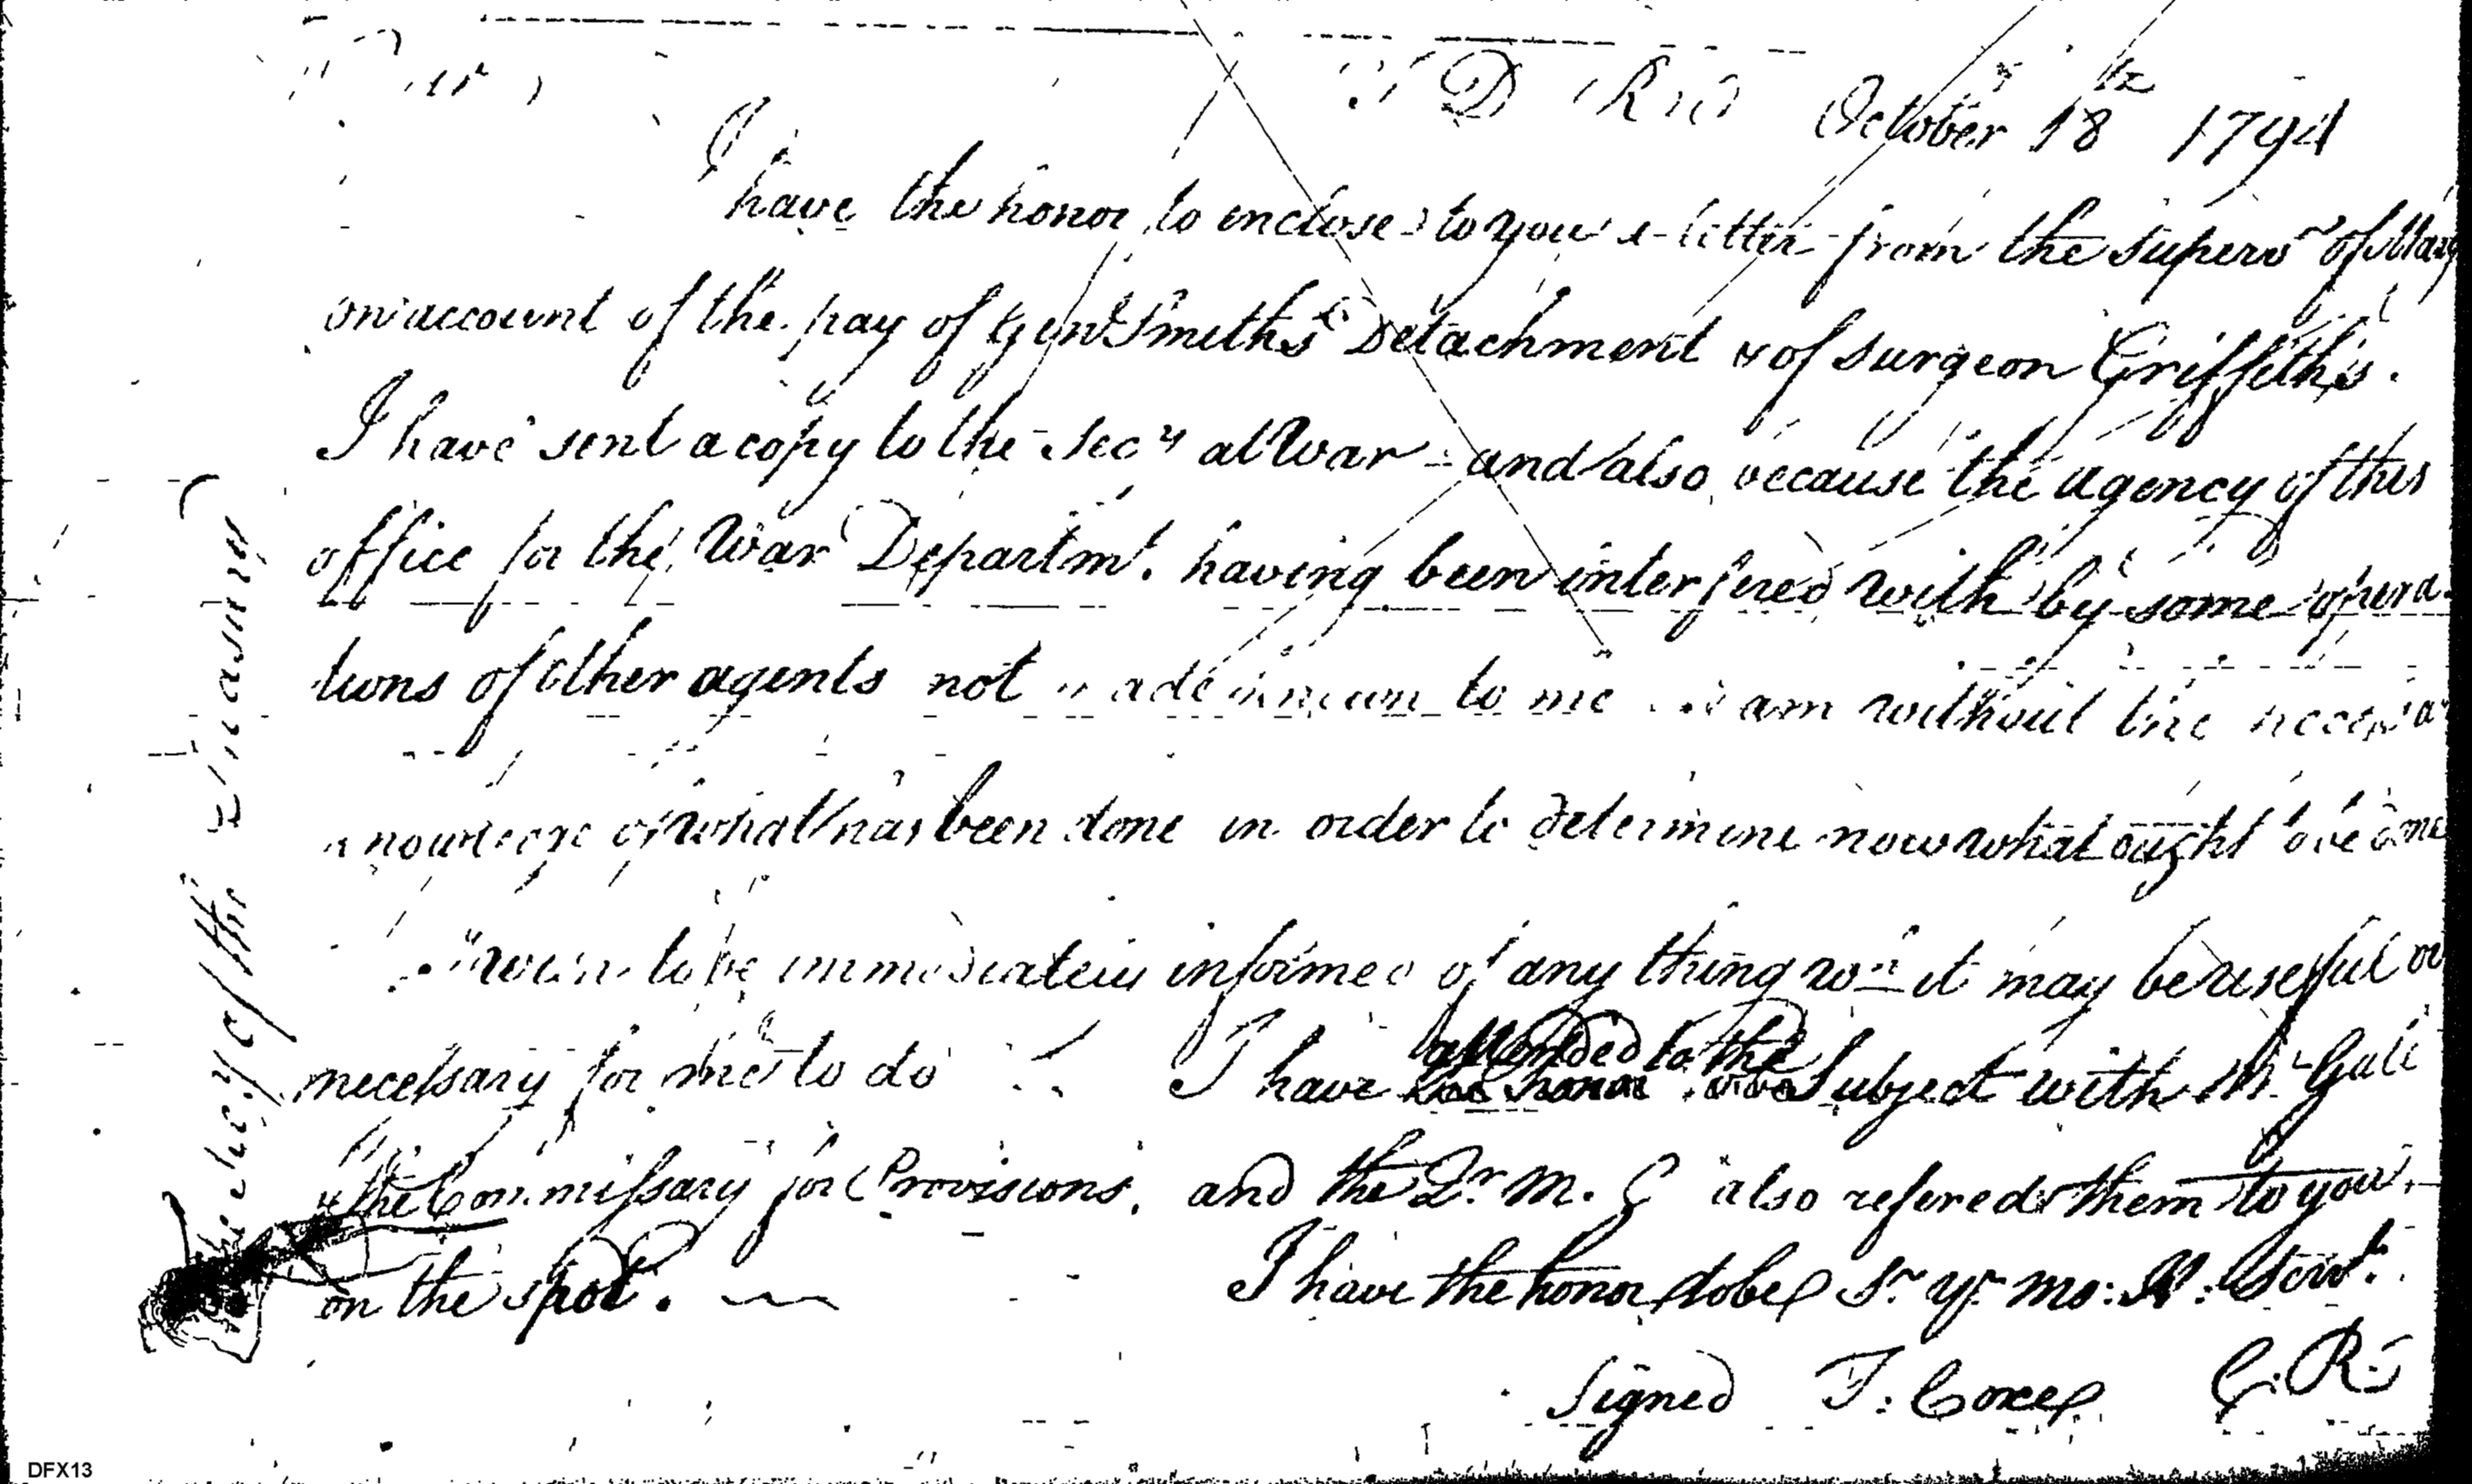 Sir,
T D R O October 18th 1794
I have the honor to inclose to you a letter from the Superv^r of Mary
on account of the pay of Gen^l Smith's Detachment & of Surgeon Griffith's.
I have sent a copy to the Sec^y at War - and also because the agency of this
office for the War Departm^t. having been interfered with by some opera-
tions of other agents not made known to me I am without the necessa
knowledge of what has been done in order to determine now what ought to be done
I wish to be immediately informed of any thing wh it may be useful or
necessary for me to do I have
attended to the
Subject with M^r Gale
& the Commissary for Provisions, and the Q^r. M. G also refered them to you
on the spot.
I have the honor to be S^r y^r mo: H: Serv^t.
Signed T: Coxe C.R.
The Secy of the Treasury
DFX13